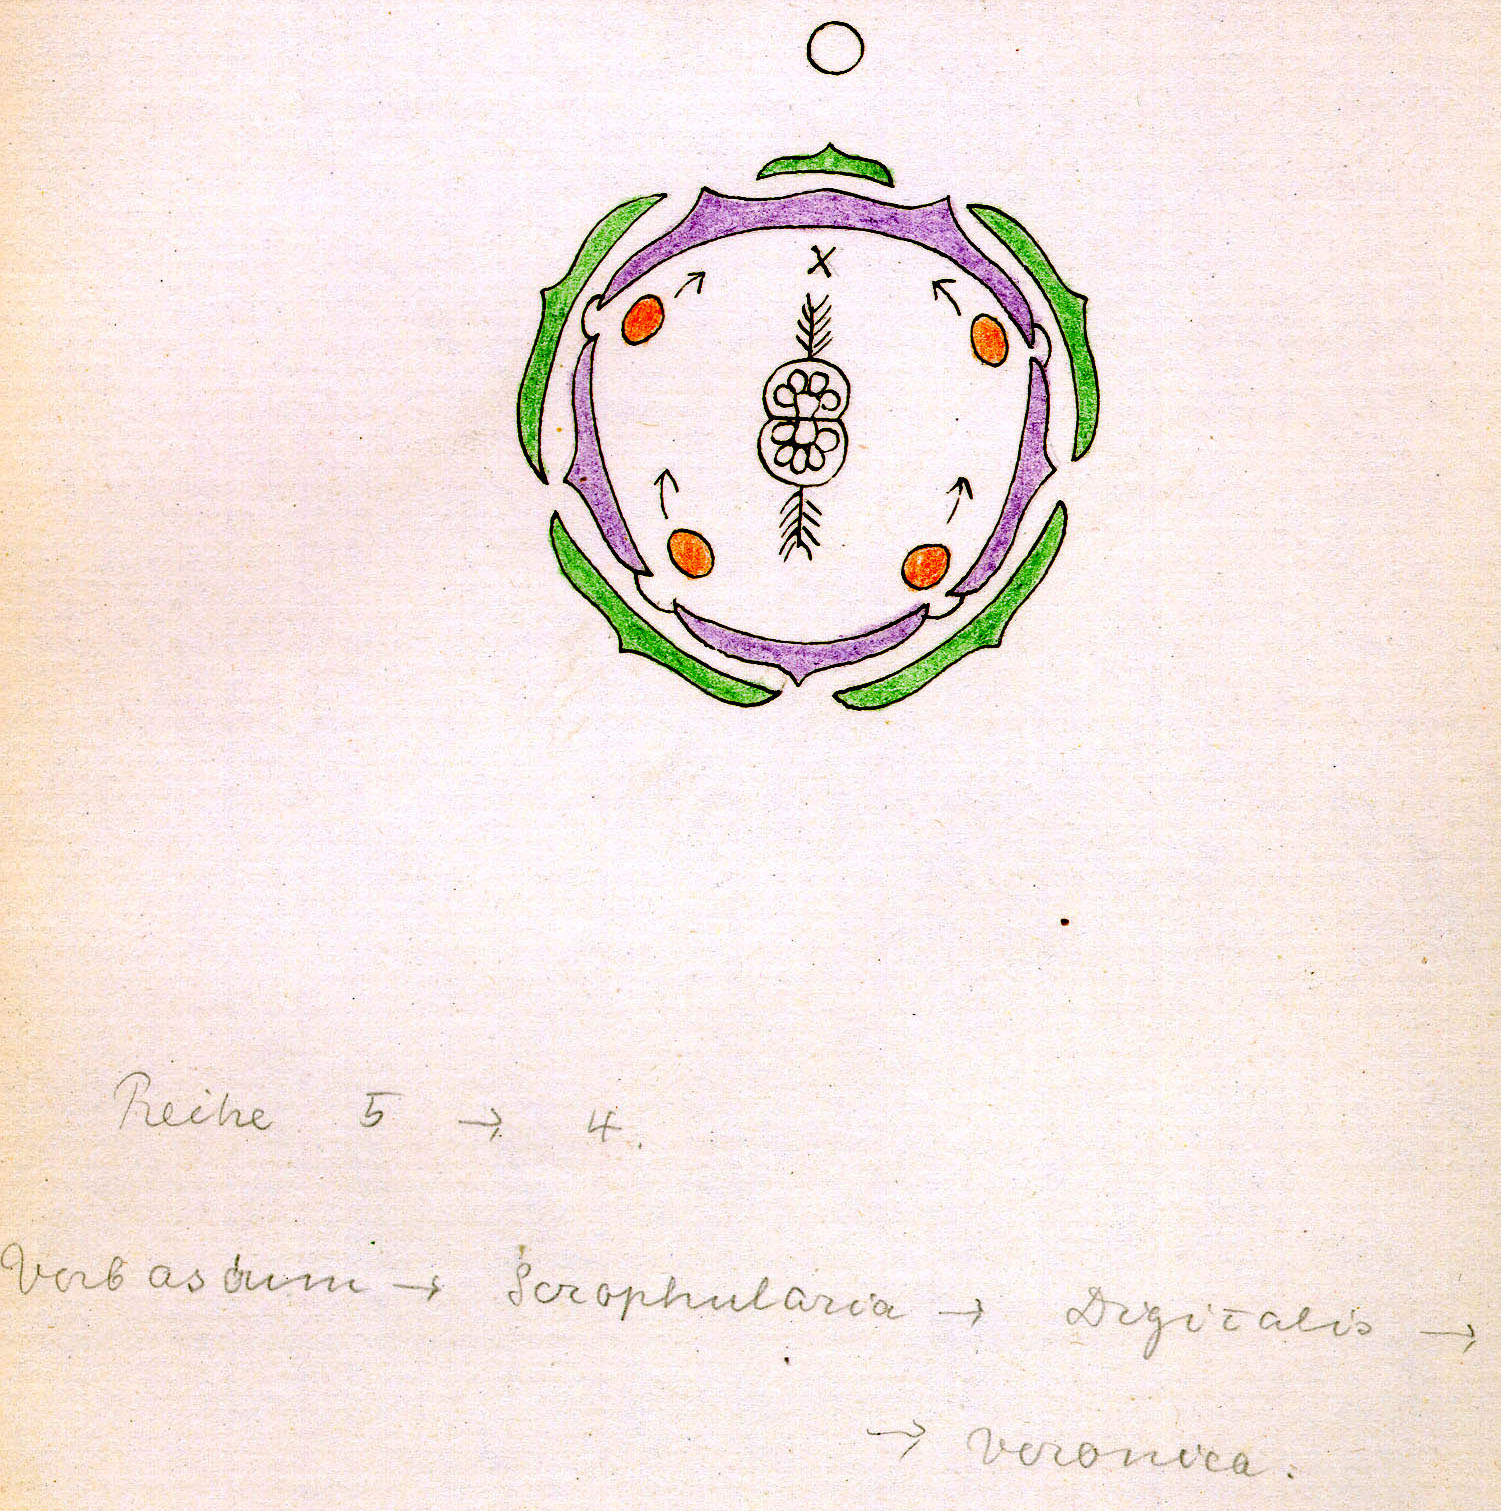 x
Reihe 5 → 4.
Verbascum → Scrophularia → Digitalis →
→ Veronica.